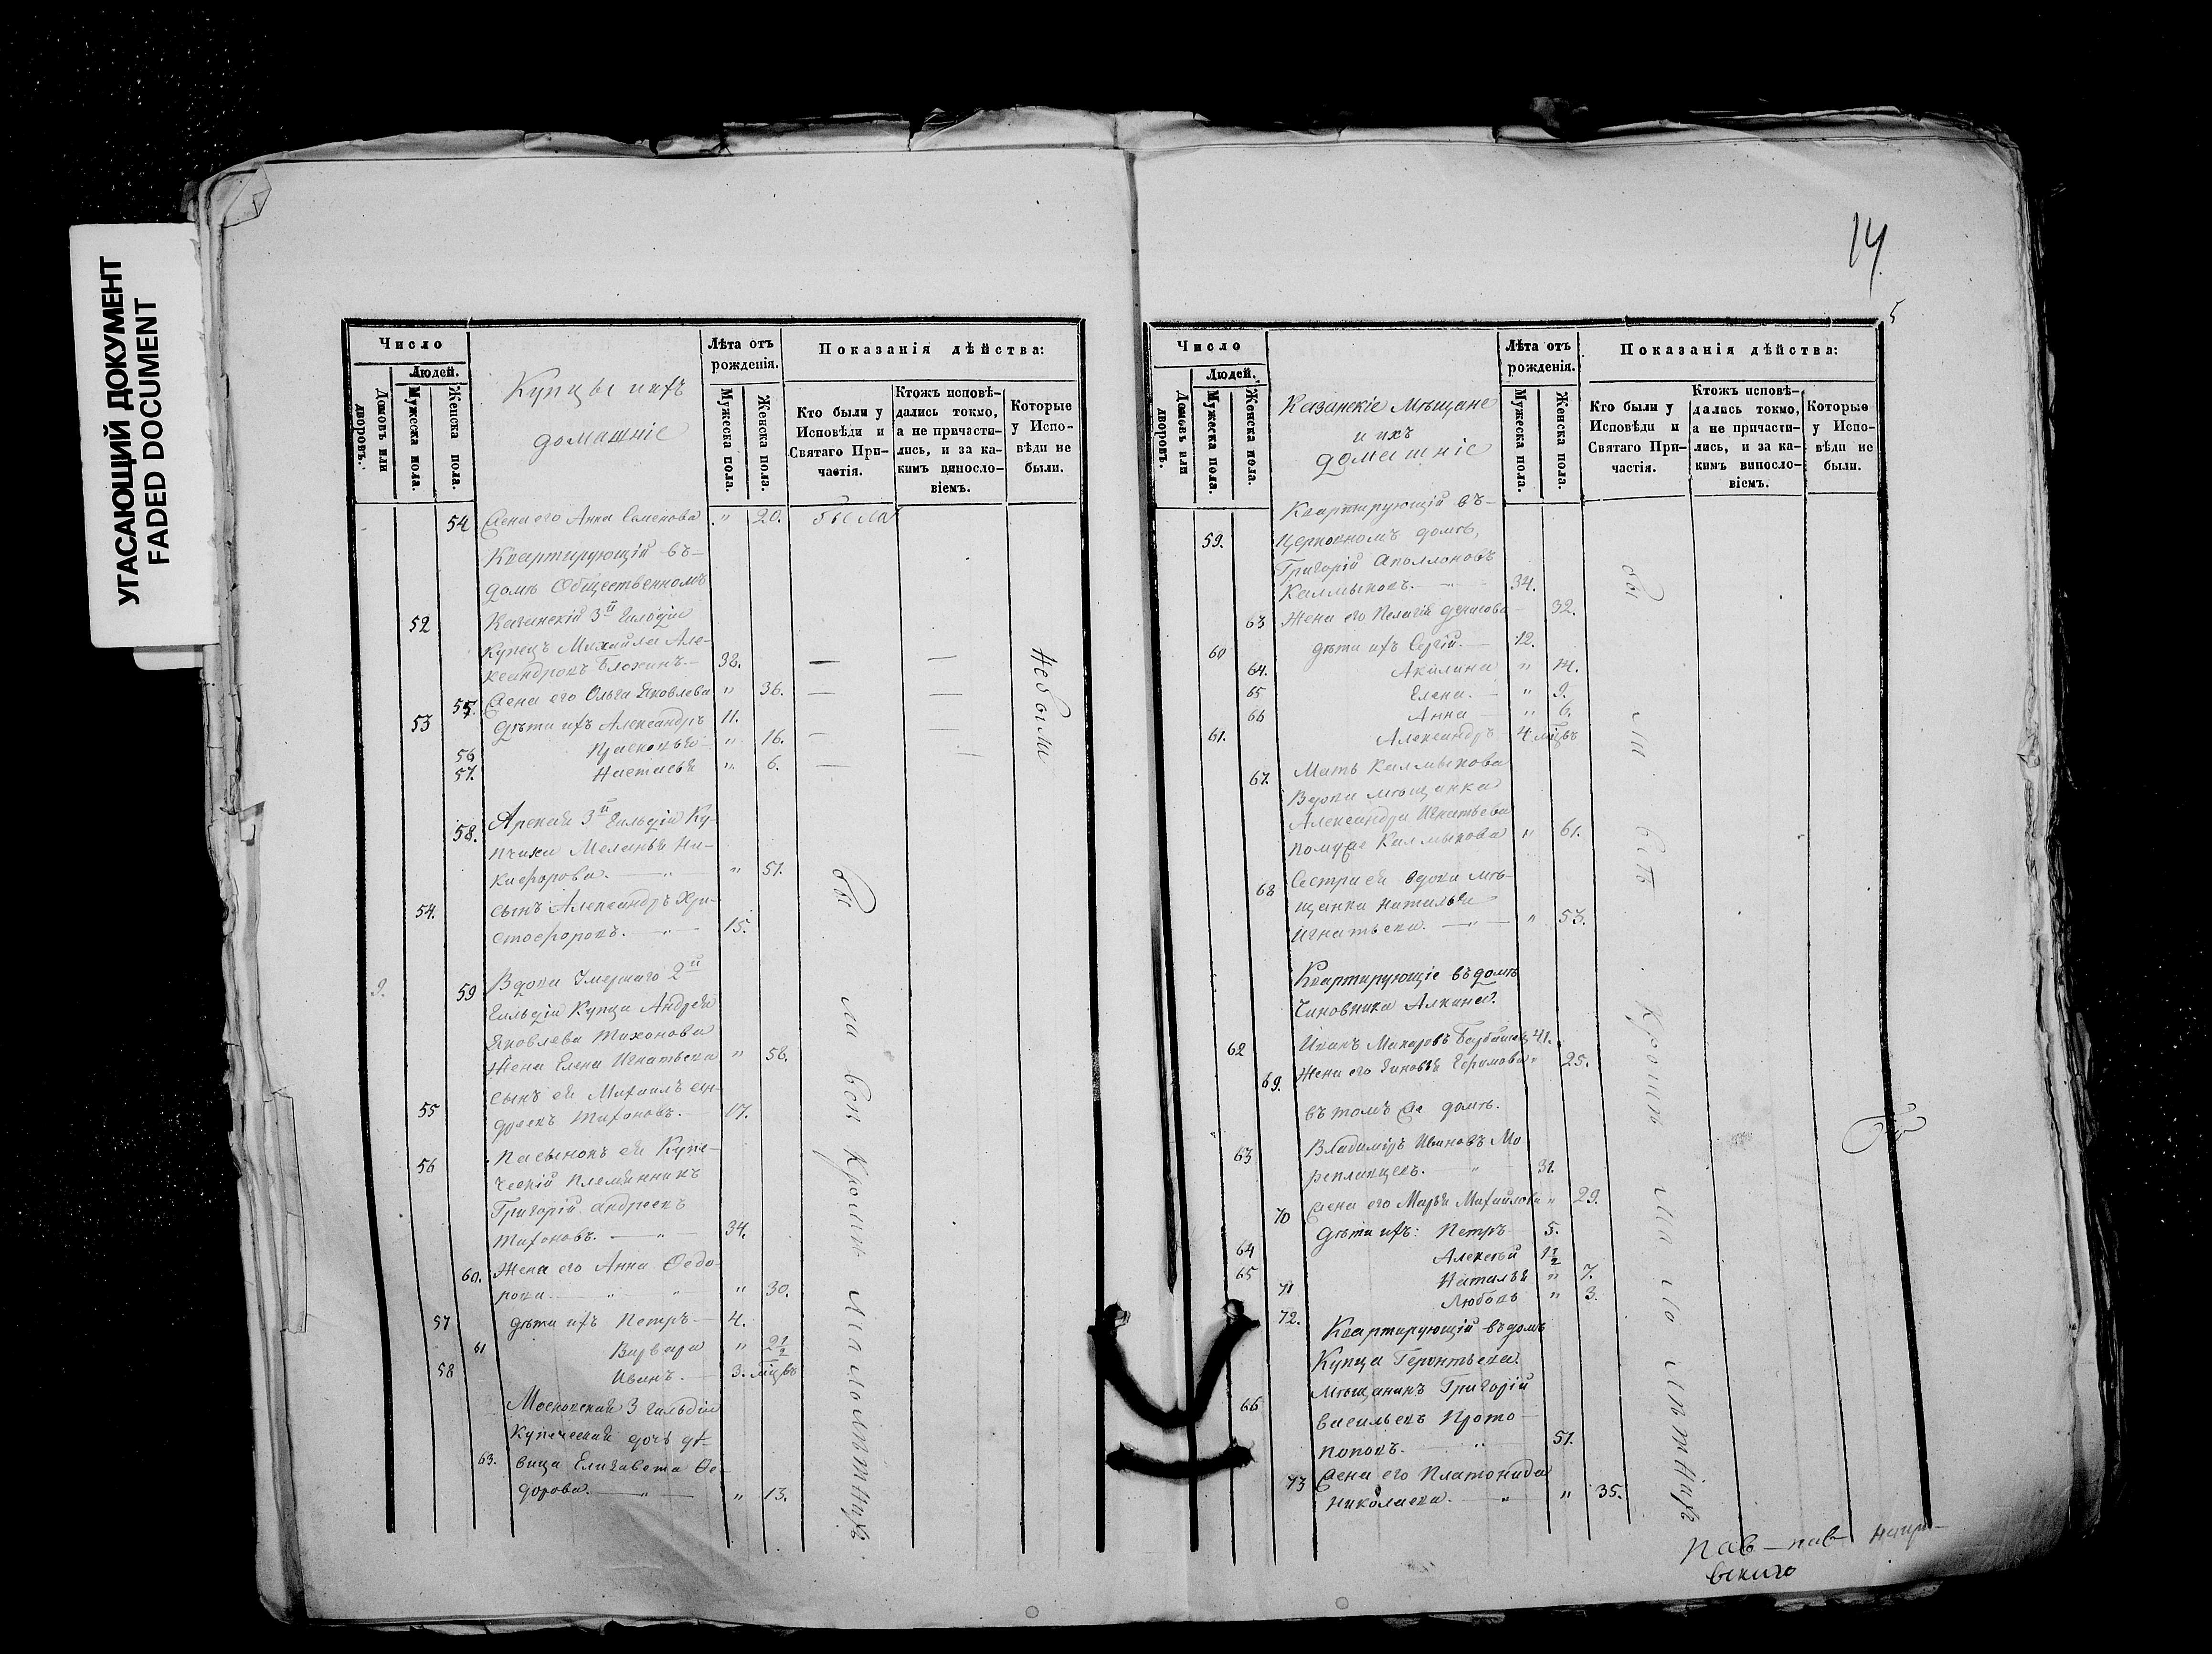 УГАСАЮЩИЙ ДОКУМЕНТ
FADED DOCUMENT
Число
Людей.
Домовъ или дворовъ.
Мужеска пола.
Женска пола.
Купцы и ихъ
домашніе
Лѣта отъ рожденія.
Мужеска пола.
Женска пола.
Показанія дѣйства:
Кто были у Исповѣди и Святаго Причастія.
Ктожъ исповѣдались токмо, а не причастились, и за какимъ винословіемъ.
Которые у Исповѣди не были.
54 Жена его Анна Семенова " 20. была
Квартирующій въ
домѣ Общественномъ
52 Казанскій 3й гильдіи
Купецъ Михайла Але-
ксандровъ Блохинъ. 38. — —
55. Жена его Ольга Яковлева " 36. — —
53 дѣти ихъ Александръ 11.
56 Прасковья " 16. — —
57. Настасья " 6. —
не были
58. Арская 3й гильдіи Ку-
пчиха Меланья Ни-
кифорова. " 51.
54. сынъ Александръ Хри-
стофоровъ. 15.
9. 59 Вдова умершаго 2й
гильдіи Купца Андрея
Яковлева Тихонова
Жена Елена Игнатьева " 58.
55 сынъ ея Михаилъ Ан-
дреевъ Тихоновъ. 17.
56 Пасынокъ ея Купе-
ческій племянникъ
Григорій Андреевъ
Тихоновъ. 34.
60. Жена его Анна Ѳедо-
рова " 30.
57 дѣти ихъ Петръ 4.
61 Варвара " 2½
58 Иванъ. 3. мцвъ
Московская 3 гильдіи
Купеческая дочь дѣ-
63. вица Елизавета Ѳе-
дорова. " 13.
были всѣ кромѣ малолѣтнихъ
14.
5
Число
Людей.
Домовъ или дворовъ.
Мужеска пола.
Женска пола.
Казанскіе Мѣщане
и ихъ
домашніе
Лѣта отъ рожденія.
Мужеска пола.
Женска пола.
Показанія дѣйства:
Кто были у Исповѣди и Святаго Причастія.
Ктожъ исповѣдались токмо, а не причастились, и за какимъ винословіемъ.
Которые у Исповѣди не были.
Квартирующій въ
59. Церковномъ домѣ,
Григорій Аполлоновъ
Калмыковъ. 34.
63 Жена его Пелагія Денисова 32.
60 дѣти ихъ Сергій. 12.
64. Акилина "
65 Елена. " 9.
66 Анна " 6.
61. Александръ 4 мцвъ
67. Мать Калмыкова
Вдова мѣщанка
Александра Игнатьева
по мужѣ Калмыкова " 61.
68 Сестра ея вдова мѣ-
щанка Наталья
Игнатьева. " 53.
Квартирующіе въ домѣ
Чиновника Алкина.
62 Иванъ Макаровъ 41.
69. Жена его Зиновья Ефимова " 25.
въ томъ же домѣ.
63 Владиміръ Ивановъ Мо-
реплавцевъ. 31.
70 Жена его Марья Михайлова " 29.
64 дѣти ихъ: Петръ 5.
65 Алексѣй 1½
71 Наталья " 7.
72. Любовь " 3.
Квартирующій въ домѣ
Купца Геронтьева.
66 Мѣщанинъ Григорій
Васильевъ Прото-
поповъ. 51.
73 Жена его Платонида
Николаева. " 35.
были всѣ кромѣ малолѣтнихъ